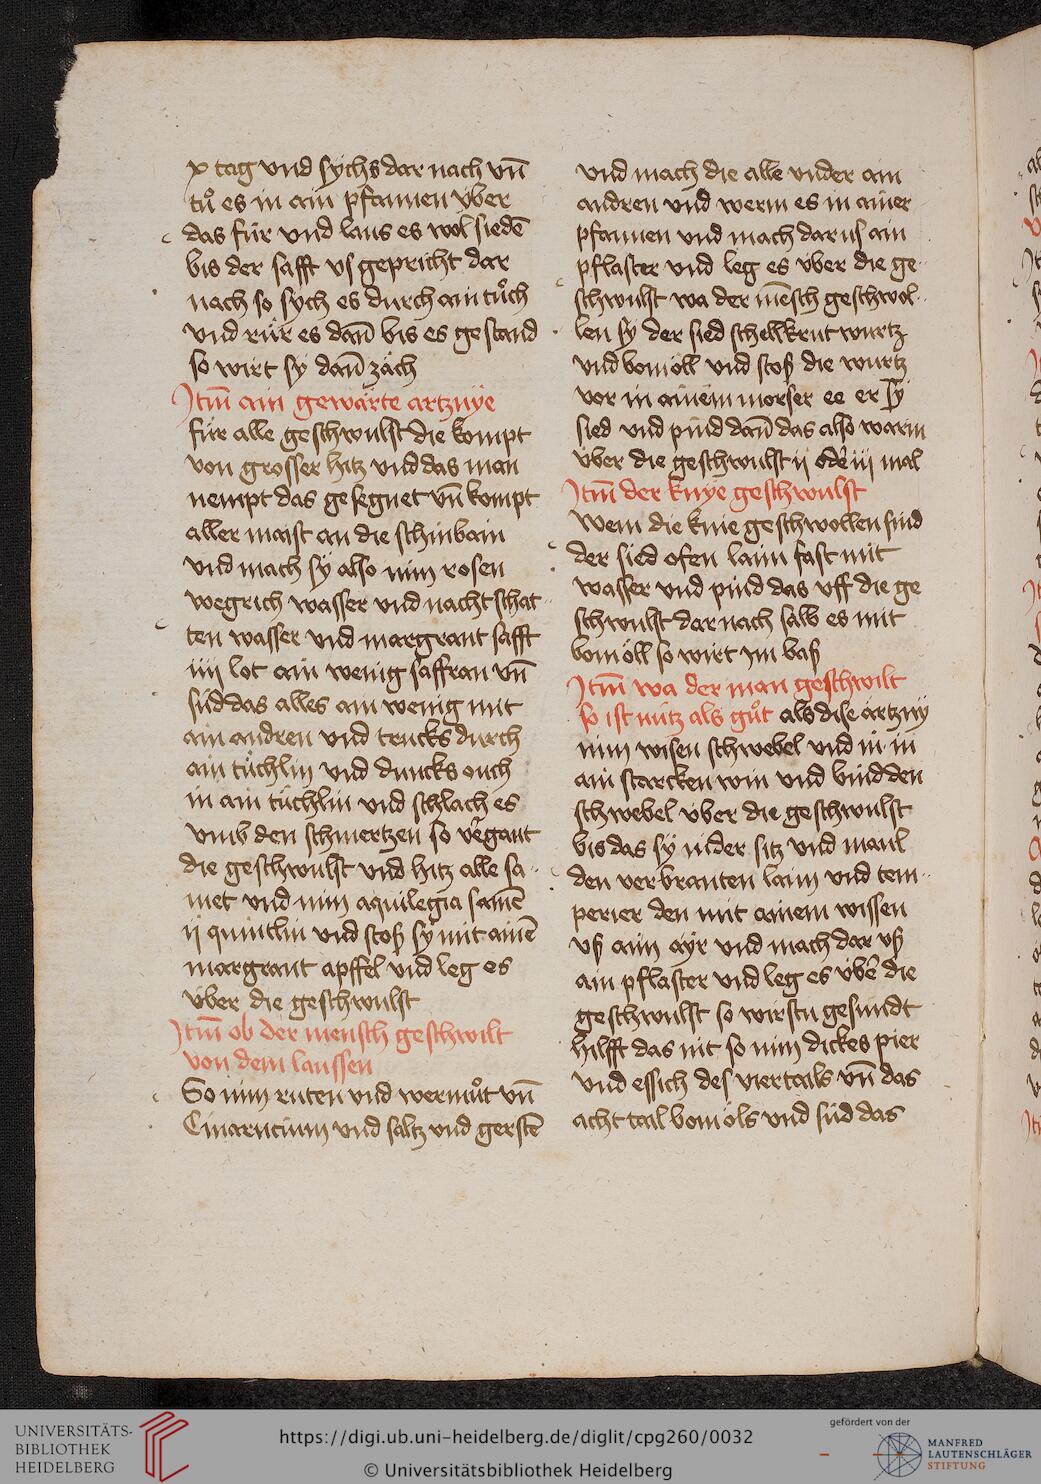 x tag vnd sychs dar nach vn̄
tuͦ es in ain pfannen v̈ber
das für vnd laus es wol siedē
bis der safft vs gepricht dar
nach so sych es durch ain tuͦch
vnd rür es dan̄ bis es gestand
so wirt sy dan̄ zäch
Jtm̄ ain gewärte artznye
für alle geschwulst die kompt
von grosser hitz vnd das man
nempt das gesegnet vn̄ kompt
aller maist an die schinbain
vnd mach sy also nim rosen
wegrich wasser vnd nacht schat
ten wasser vnd margrant safft
iiij lot ain wenig saffran vn̄
süd das alles ain wenig mit
ain andren vnd trucks durch
ain tüchlin vnd duncks ouch
in ain tüchlin vnd schlach es
vmb den schmertzen so vergant
die geschwulst vnd hitz alle sa
met vnd nim aquilegia samē
ij quintlin vnd stoß sy mit ainē
margrant apffel vnd leg es
v̈ber die geschwulst
Jtm̄ ob der mensch geschwilt
von dem laussen
So nim ruten vnd wermuͦt vn̄
vnd saltz vnd gerstē
vnd mach die alle vnder ain
andren vnd werm es in ainer
pfannen vnd mach dar us ain
pflaster vnd leg es v̈ber die ge
schwulst wa der mēsch geschwol
len sy der sied schellkrut wurtz
vnd bomöll vnd stoß die wurtz
vor in ainem morser ee er sy
sied vnd pind dan̄ das also warm
v̈ber die geschwulst ij oder iij mal
Jtm̄ der knye geschwulst
Wem die knie geschwollen sind
der sied ofen laim fast mit
wasser vnd pind das vff die ge
schwulst dar nach salb es mit
bomöll so wirt jm baß
Jtm̄ wa der man geschwilt
so ist nütz als guͦt als dise artzny
nim wisen schwebel vnd in in
ain starcken win vnd bind den
schwebel v̈ber die geschwulst
bis das sy nider sitz vnd maul
den verbranten laim vnd tem
perier den mit ainem wissen
vß aim ayr vnd mach dar vß
ain pflaster vnd leg es v̈ber die
geschwulst so wirstu gesundt
hilfft das nit so nim dickes pier
vnd essich des viertails vn̄ das
acht tail bomöls vnd süd das
UNIVERSITÄTS-
BIBLIOTHEK
HEIDELBERG
https://digi.ub.uni-heidelberg.de/diglit/cpg260/0032
© Universitätsbibliothek Heidelberg
gefördert von der
MANFRED
LAUTENSCHLÄGER
STIFTUNG